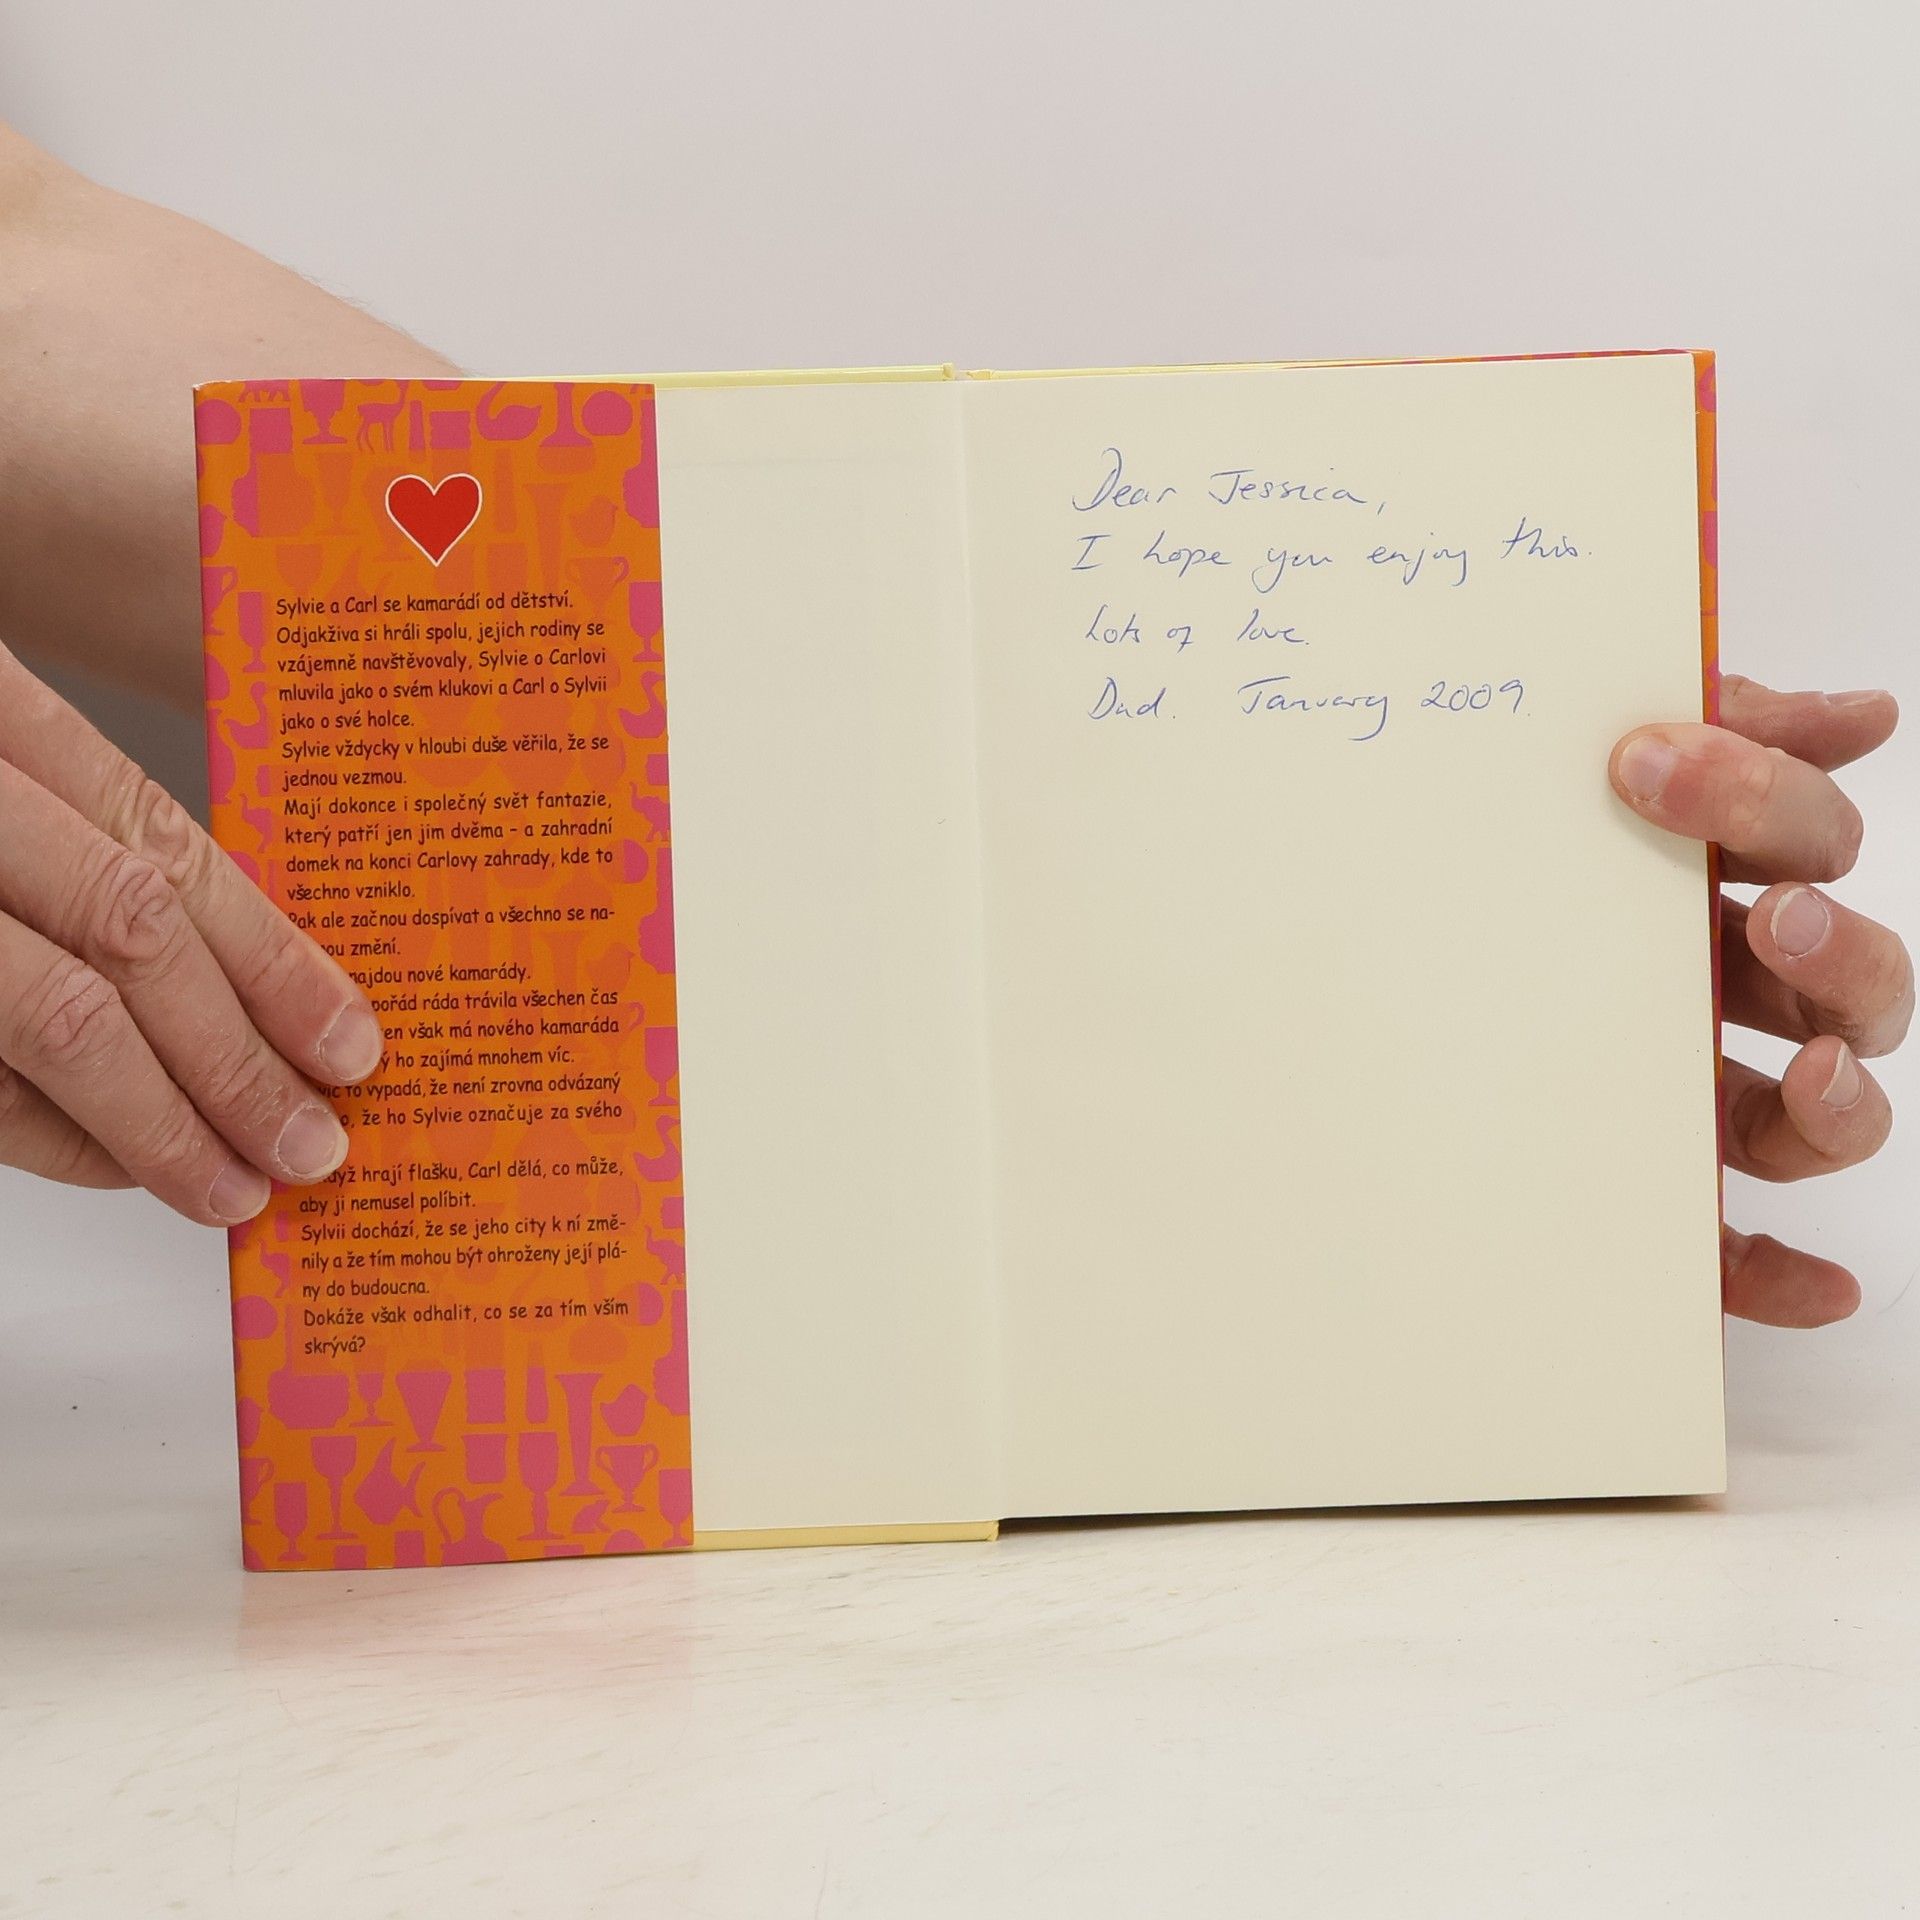 Sylvie a Carl se kamarádí od dětství.
Odjakživa si hráli spolu, jejich rodiny se
vzájemně navštěvovaly, Sylvie o Carlovi
mluvila jako o svém klukovi a Carl o Sylvii
jako o své holce.
Sylvie vždycky v hloubi duše věřila, že se
jednou vezmou.
Mají dokonce i společný svět fantazie,
který patří jen jim dvěma – a zahradní
domek na konci Carlovy zahrady, kde to
všechno vzniklo.
Pak ale začnou dospívat a všechno se na-
změní.
najdou nové kamarády.
pořád ráda trávila všechen čas
však má nového kamaráda
ho zajímá mnohem víc.
to vypadá, že není zrovna odvázaný
že ho Sylvie označuje za svého
hrají flašku, Carl dělá, co může,
aby ji nemusel políbit.
Sylvii dochází, že se jeho city k ní změ-
nily a že tím mohou být ohroženy její plá-
ny do budoucna.
Dokáže však odhalit, co se za tím vším
skrývá?
Dear Jessica,
I hope you enjoy this.
Lots of love.
Dad. January 2009.